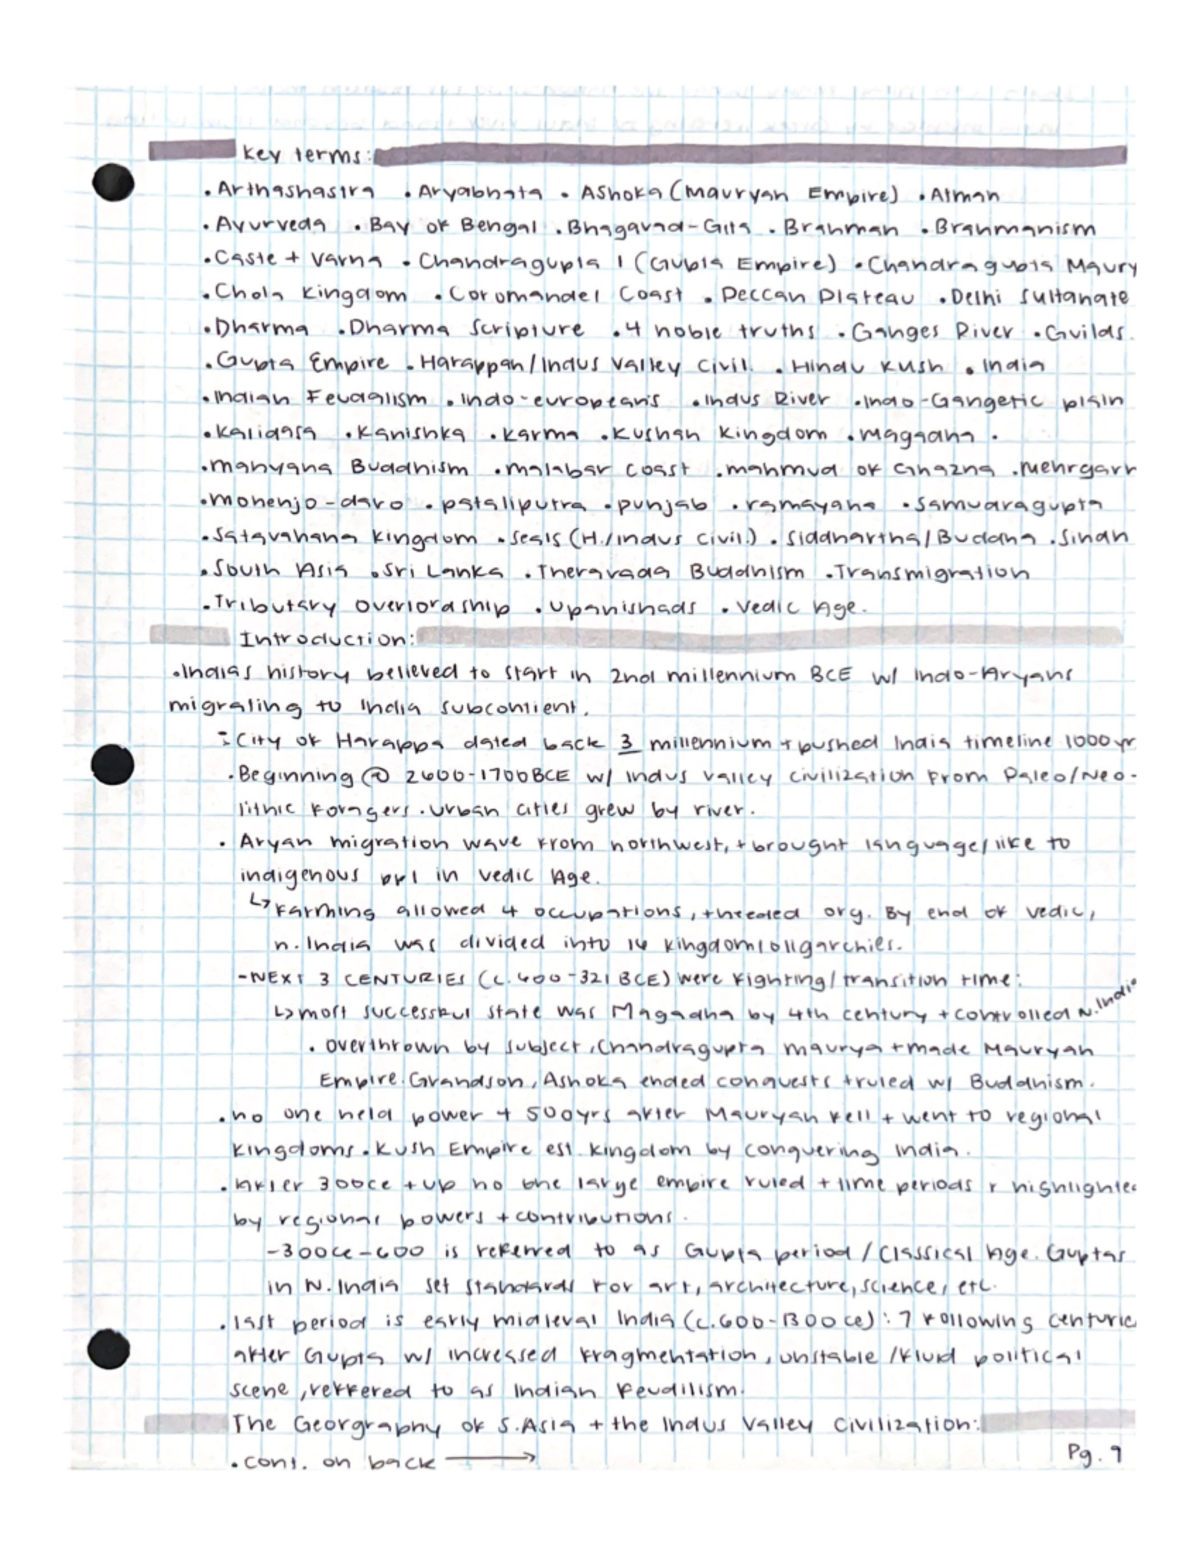 Key terms:
• Arthashastra • Aryabhata • Ashoka (Mauryan Empire) • Atman
• Ayurveda • Bay of Bengal • Bhagavad-Gita • Brahman • Brahmanism
• Caste + varna • Chandragupta 1 (Gupta Empire) • Chandragupta Maury
• Chola Kingdom • Coromandel Coast • Deccan Plateau • Delhi Sultanate
• Dharma • Dharma Scripture • 4 noble truths • Ganges River • Guilds
• Gupta Empire • Harappan/Indus Valley Civil. • Hindu Kush • India
• Indian Feudalism • Indo-europeans • Indus River • Indo-Gangetic plain
• Kalidasa • Kanishka • Karma • Kushan Kingdom • magadha •
• mahyana Buddhism • malabar coast • mahmud of Ghazna • Mehrgarh
• mohenjo-daro • pataliputra • punjab • ramayana • Samudragupta
• Satavahana Kingdom • Seals (H./Indus Civil.) • Siddhartha/Buddha • Sindh
• South Asia • Sri Lanka • Theravada Buddhism • Transmigration
• Tributary overlordship • upanishads • Vedic Age.
Introduction:
• Indias history believed to start in 2nd millennium BCE w/ Indo-Aryans
migrating to India subcontient.
- City of Harappa dated back 3 millennium + pushed India timeline 1000 yr
• Beginning @ 2600-1700 BCE w/ Indus valley civilization from Paleo/Neo-
lithic foragers. Urban cities grew by river.
• Aryan migration wave from northwest, + brought language/like to
indigenous ppl in Vedic Age.
↳ Farming allowed 4 occupations, + needed org. By end of vedic,
n. India was divided into 16 kingdom/oligarchies.
- NEXT 3 CENTURIES (c. 600-321 BCE) were fighting/transition time:
↳ most successful state was Magadha by 4th century + controlled N. India
• overthrown by subject, Chandragupta maurya + made Mauryan
Empire. Grandson, Ashoka ended conquests + ruled w/ Buddhism.
• no one held power 4 500yrs after Mauryan fell + went to regional
kingdoms. Kush Empire est. kingdom by conquering India.
• After 300ce + up no one large empire ruled + time periods r highlighted
by regional powers + contributions.
- 300ce-600 is referred to as Gupta period/Classical Age. Guptas
in N. India set standards for art, architecture, science, etc.
• last period is early midieval India (c. 600-1300 ce): 7 following centurie
after Gupta w/ increased fragmentation, unstable/fluid political
scene, reffered to as Indian feudilism.
The Georgraphy of S. Asia + the Indus Valley Civilization:
• cont. on back →
Pg. 9